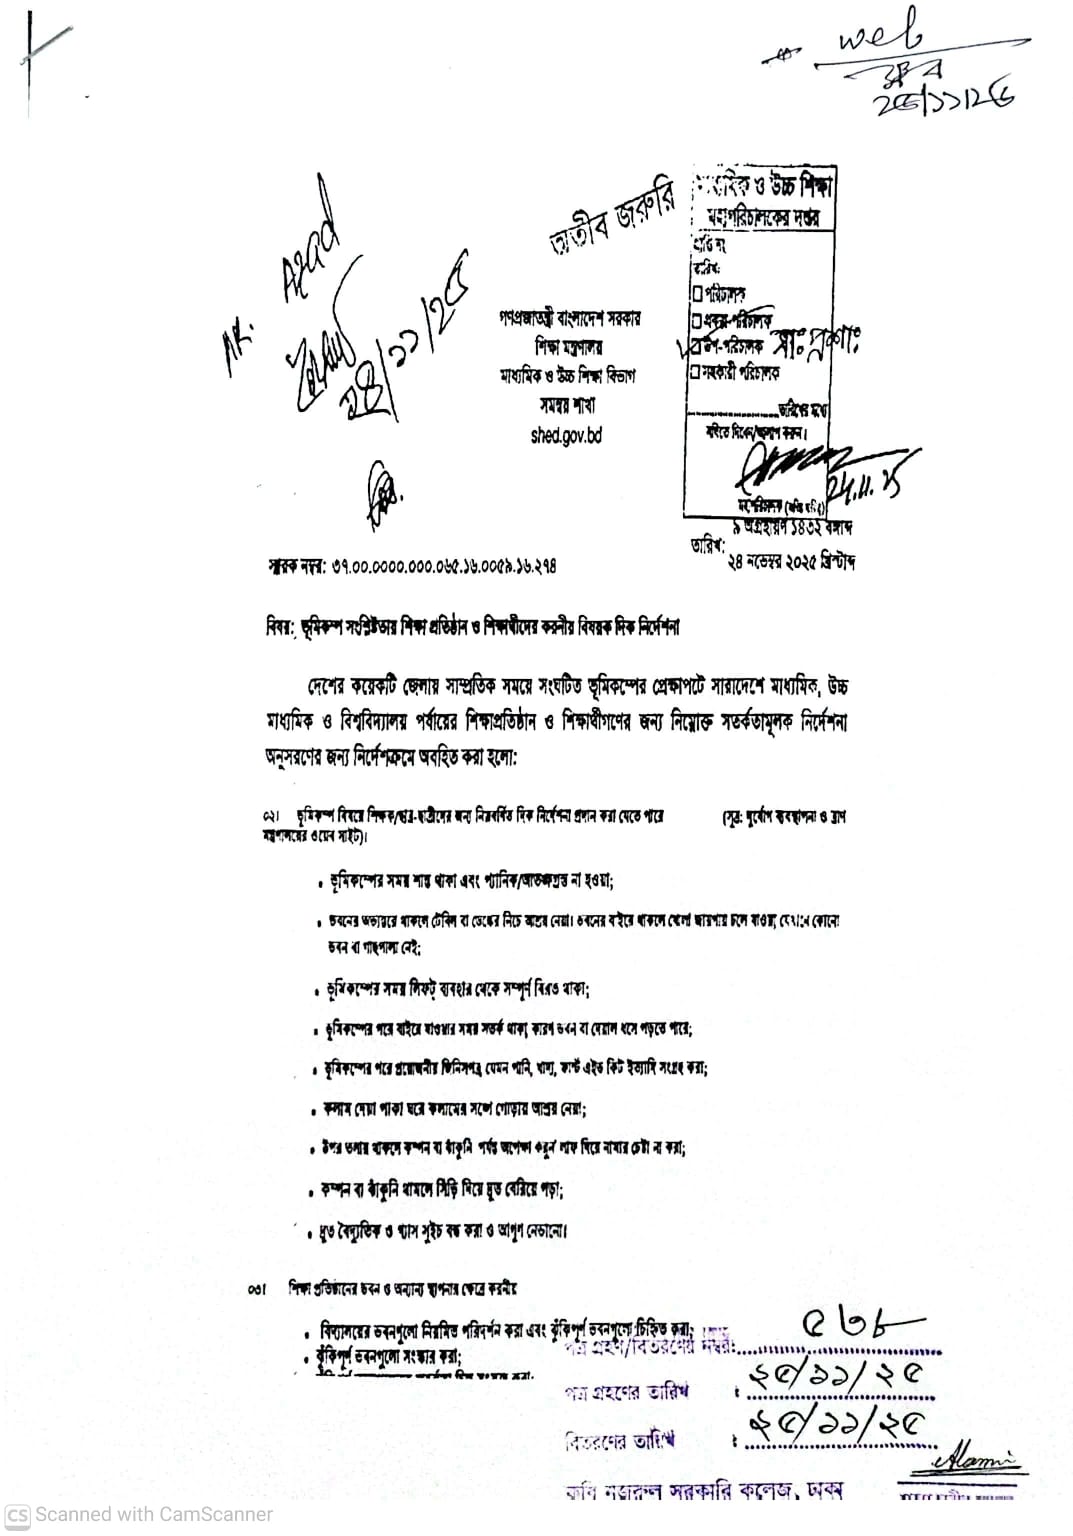 web
২৫/১১/২৫
অতীব জরুরি
মাধ্যমিক ও উচ্চ শিক্ষা
মহাপরিচালকের দপ্তর
তারিখ:
পরিচালক
উপ-পরিচালক
সহকারী পরিচালক
Azad
গণপ্রজাতন্ত্রী বাংলাদেশ সরকার
শিক্ষা মন্ত্রণালয়
মাধ্যমিক ও উচ্চ শিক্ষা বিভাগ
সমন্বয় শাখা
shed.gov.bd
24.11.25
৯ অগ্রহায়ণ ১৪৩২ বঙ্গাব্দ
তারিখ:
২৪ নভেম্বর ২০২৫ খ্রিস্টাব্দ
স্মারক নম্বর: ৩৭.০০.০০০০.০০০.০৬৫.১৬.০০৫৯.১৬.২৭৪
বিষয়: ভূমিকম্প সংশ্লিষ্টতায় শিক্ষা প্রতিষ্ঠান ও শিক্ষার্থীদের করনীয় বিষয়ক দিক নির্দেশনা
দেশের কয়েকটি জেলায় সাম্প্রতিক সময়ে সংঘটিত ভূমিকম্পের প্রেক্ষাপটে সারাদেশে মাধ্যমিক, উচ্চ
মাধ্যমিক ও বিশ্ববিদ্যালয় পর্যায়ের শিক্ষাপ্রতিষ্ঠান ও শিক্ষার্থীগণের জন্য নিম্নোক্ত সতর্কতামূলক নির্দেশনা
অনুসরণের জন্য নির্দেশক্রমে অবহিত করা হলো:
০২। ভূমিকম্প বিষয়ে শিক্ষক/ছাত্র-ছাত্রীদের জন্য নিম্নবর্ণিত দিক নির্দেশনা প্রদান করা যেতে পারে (সূত্র: দুর্যোগ ব্যবস্থাপনা ও ত্রাণ
মন্ত্রণালয়ের ওয়েব সাইট)।
• ভূমিকম্পের সময় শান্ত থাকা এবং প্যানিক/আতঙ্কগ্রস্ত না হওয়া;
• ভবনের অভ্যন্তরে থাকলে টেবিল বা ডেস্কের নিচে আশ্রয় নেয়া। ভবনের বাইরে থাকলে খোলা জায়গায় চলে যাওয়া, যেখানে কোনো
ভবন বা গাছপালা নেই;
• ভূমিকম্পের সময় লিফট্ ব্যবহার থেকে সম্পূর্ণ বিরত থাকা;
• ভূমিকম্পের পরে বাইরে যাওয়ার সময় সতর্ক থাকা, কারণ ভবন বা দেয়াল ধসে পড়তে পারে;
• ভূমিকম্পের পরে প্রয়োজনীয় জিনিসপত্র, যেমন পানি, খাদ্য, ফার্স্ট এইড কিট ইত্যাদি সংগ্রহ করা;
• কলাম দেয়া পাকা ঘরে কলামের সঙ্গে গোড়ায় আশ্রয় নেয়া;
• উপর তলায় থাকলে কম্পন বা ঝাঁকুনি পর্যন্ত অপেক্ষা করুন লাফ দিয়ে নামার চেষ্টা না করা;
• কম্পন বা ঝাঁকুনি থামলে সিঁড়ি দিয়ে দ্রুত বেরিয়ে পড়া;
• দ্রুত বৈদ্যুতিক ও গ্যাস সুইচ বন্ধ করা ও আগুণ নেভানো।
০৩। শিক্ষা প্রতিষ্ঠানের ভবন ও অন্যান্য স্থাপনার ক্ষেত্রে করনীয়
• বিদ্যালয়ের ভবনগুলো নিয়মিত পরিদর্শন করা এবং ঝুঁকিপূর্ণ ভবনগুলো চিহ্নিত করা;
• ঝুঁকিপূর্ণ ভবনগুলো সংস্কার করা;
পত্র গ্রহণ/বিতরণের নম্বর: ৫৩৮
পত্র গ্রহণের তারিখ : ২৫/১১/২৫
বিতরণের তারিখ : ২৫/১১/২৫
কবি নজরুল সরকারি কলেজ, ঢাকা
CS Scanned with CamScanner